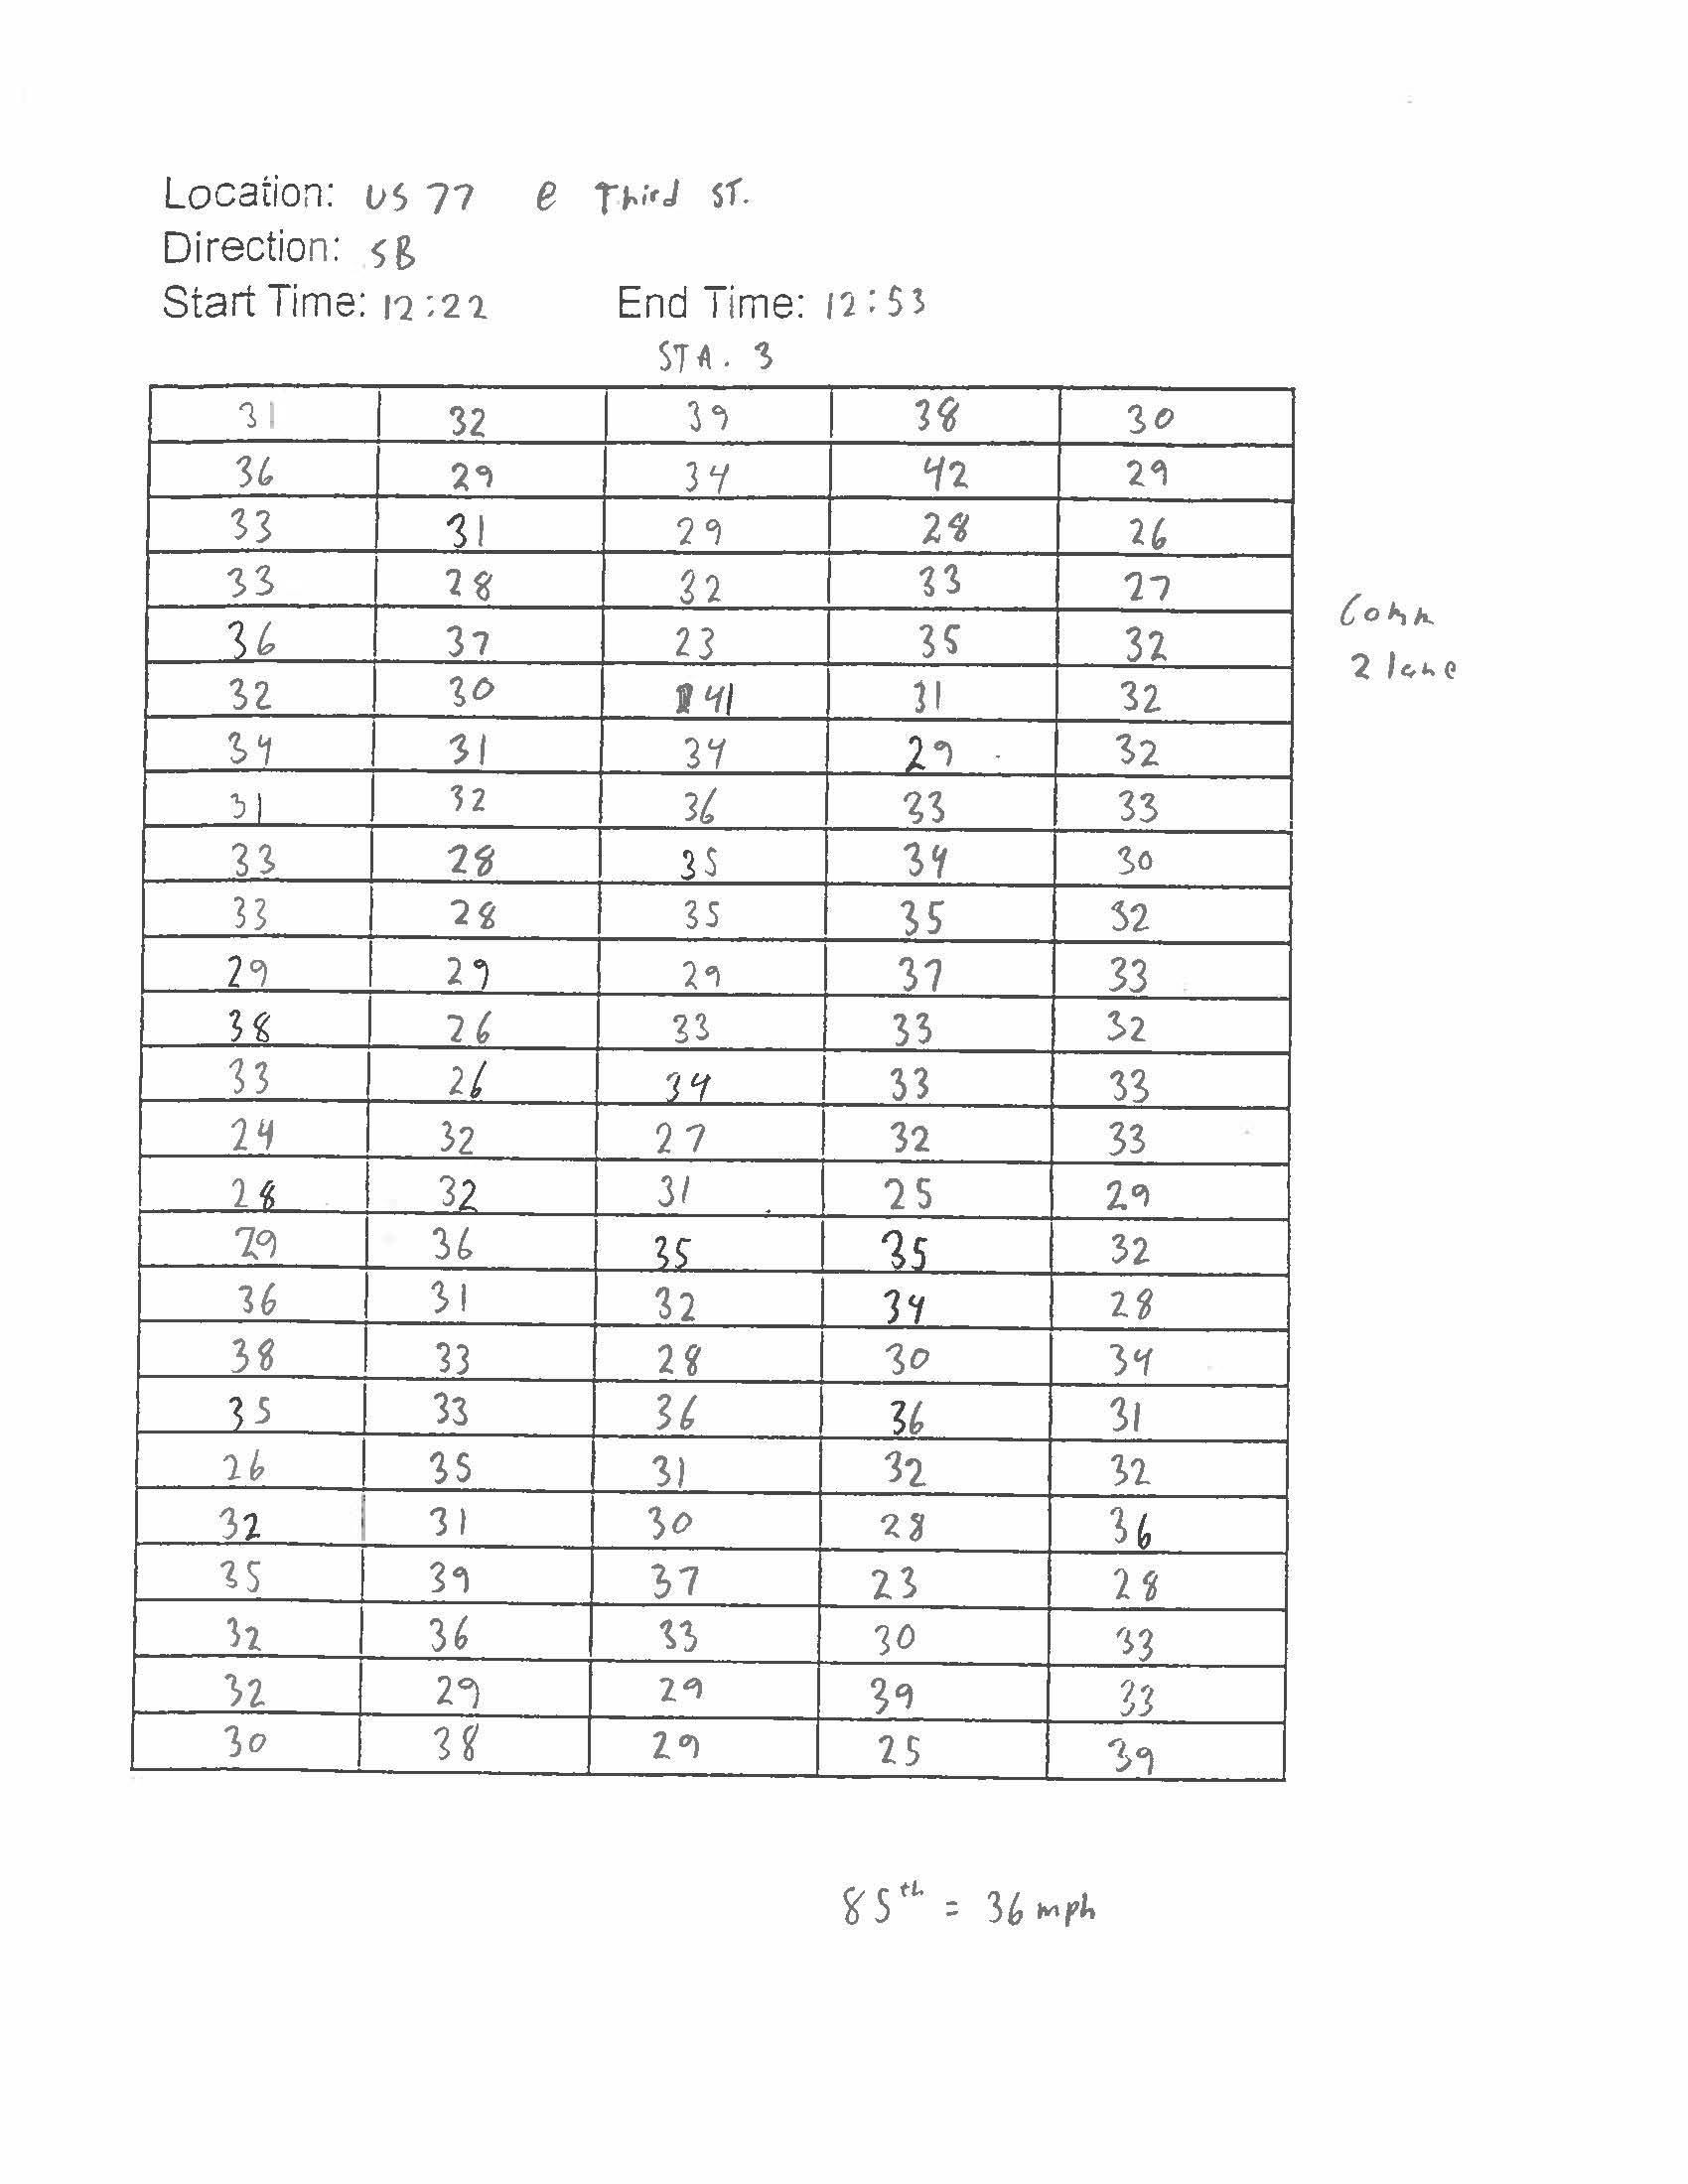 Location: US 77 @ Third ST.
Direction: SB
Start Time: 12:22 End Time: 12:53
STA. 3
31 32 39 38 30
36 29 34 42 29
33 31 29 28 26
33 28 32 33 27
36 37 23 35 32
32 30 41 31 32
34 31 34 29 32
31 32 36 33 33
33 28 35 34 30
33 28 35 35 32
29 29 29 37 33
38 26 33 33 32
33 26 34 33 33
24 32 27 32 33
28 32 31 25 29
29 36 35 35 32
36 31 32 34 28
38 33 28 30 34
35 33 36 36 31
26 35 31 32 32
32 31 30 28 36
35 39 37 23 28
32 36 33 30 33
32 29 29 39 33
30 38 29 25 39
Comm
2 lane
85th = 36 mph